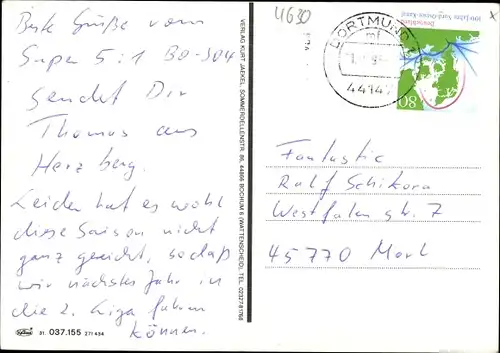 Beste Grüße vom
Super 5:1 BO-S04
Sendet Dir
Thomas aus
Herzberg.
Leider hat es wohl
diese Saison nicht
ganz gereicht, sodaß
wir nächstes Jahr in
die 2. Liga fahren
können.
31. 037.155 271 434
VERLAG KURT JAEKEL, SOMMERDELLENSTR. 86, 44866 BOCHUM 6 (WATTENSCHEID), TEL. 02327/81768
4630
DORTMUND
44147
80
Deutschland
100 Jahre Nord-Ostsee-Kanal
Fantastic
Ralf Schikora
Westfalen str. 7
45770 Marl